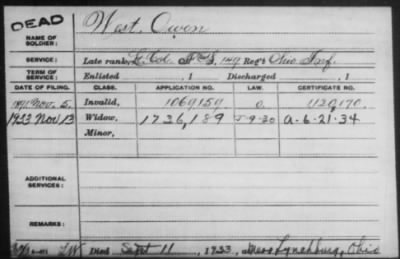 DEAD
NAME OF SOLDIER: West, Owen
SERVICE: Late rank, Lt. Col. F&S, 149 Reg't Ohio Inf.
TERM OF SERVICE: Enlisted , 1 Discharged , 1
DATE OF FILING. CLASS. APPLICATION NO. LAW. CERTIFICATE NO.
1891 Nov. 5. Invalid, 1069159 O. 1120,170.
1933 Nov 13 Widow, 1736,189 J-9-30 A-6-21-34
Minor,
ADDITIONAL SERVICES:
REMARKS:
Died Sept 11, 1933, Lynchburg, Ohio